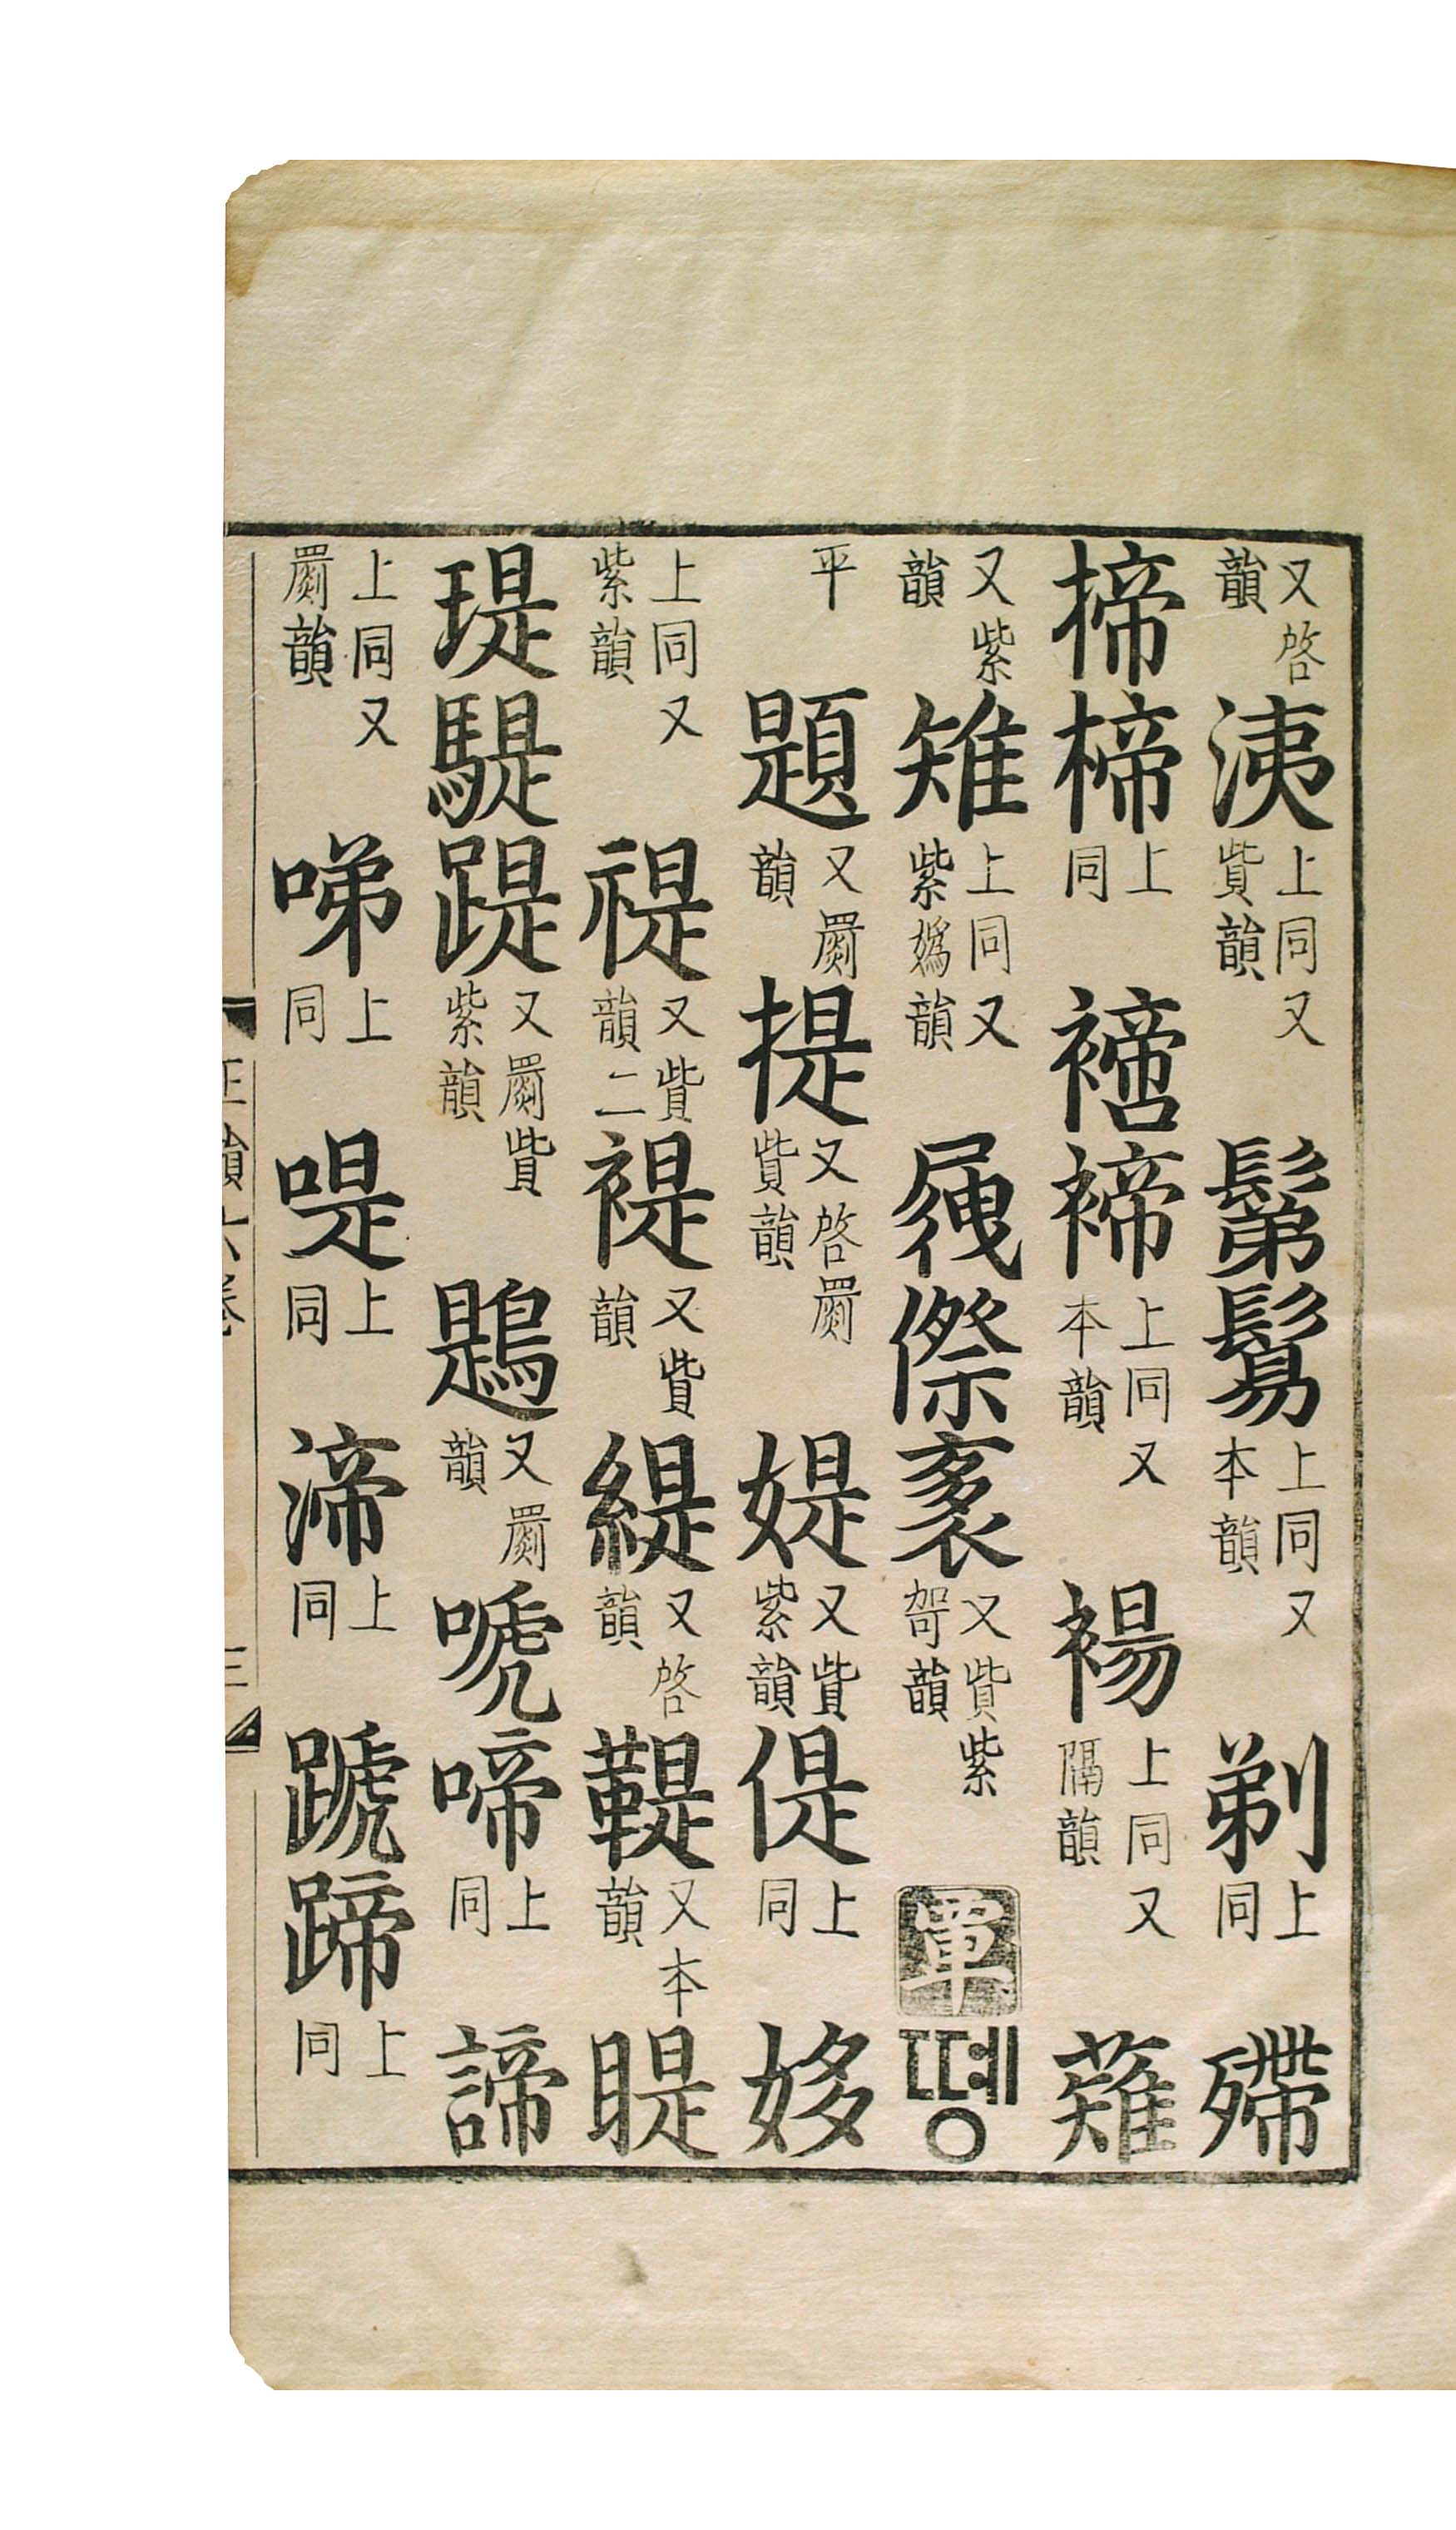 又啓韻洟上同又貲韻鬀鬄上同又本韻剃上同殢
揥楴上同䙗禘上同又本韻裼上同又隔韻薙
又紫韻雉上同又紫嬀韻㣇㥘袲又貲紫哿韻覃뗑
平題又罽韻提又啓罽貲韻媞又貲紫韻偍上同姼
上同又紫韻禔又貲韻二褆又貲韻緹又啓韻鞮又本韻睼
瑅騠踶又罽貲紫韻鶗又罽韻嗁啼上同諦
上同又罽韻㖒上同啑上同渧上同蹏蹄上同
正韻六卷 三